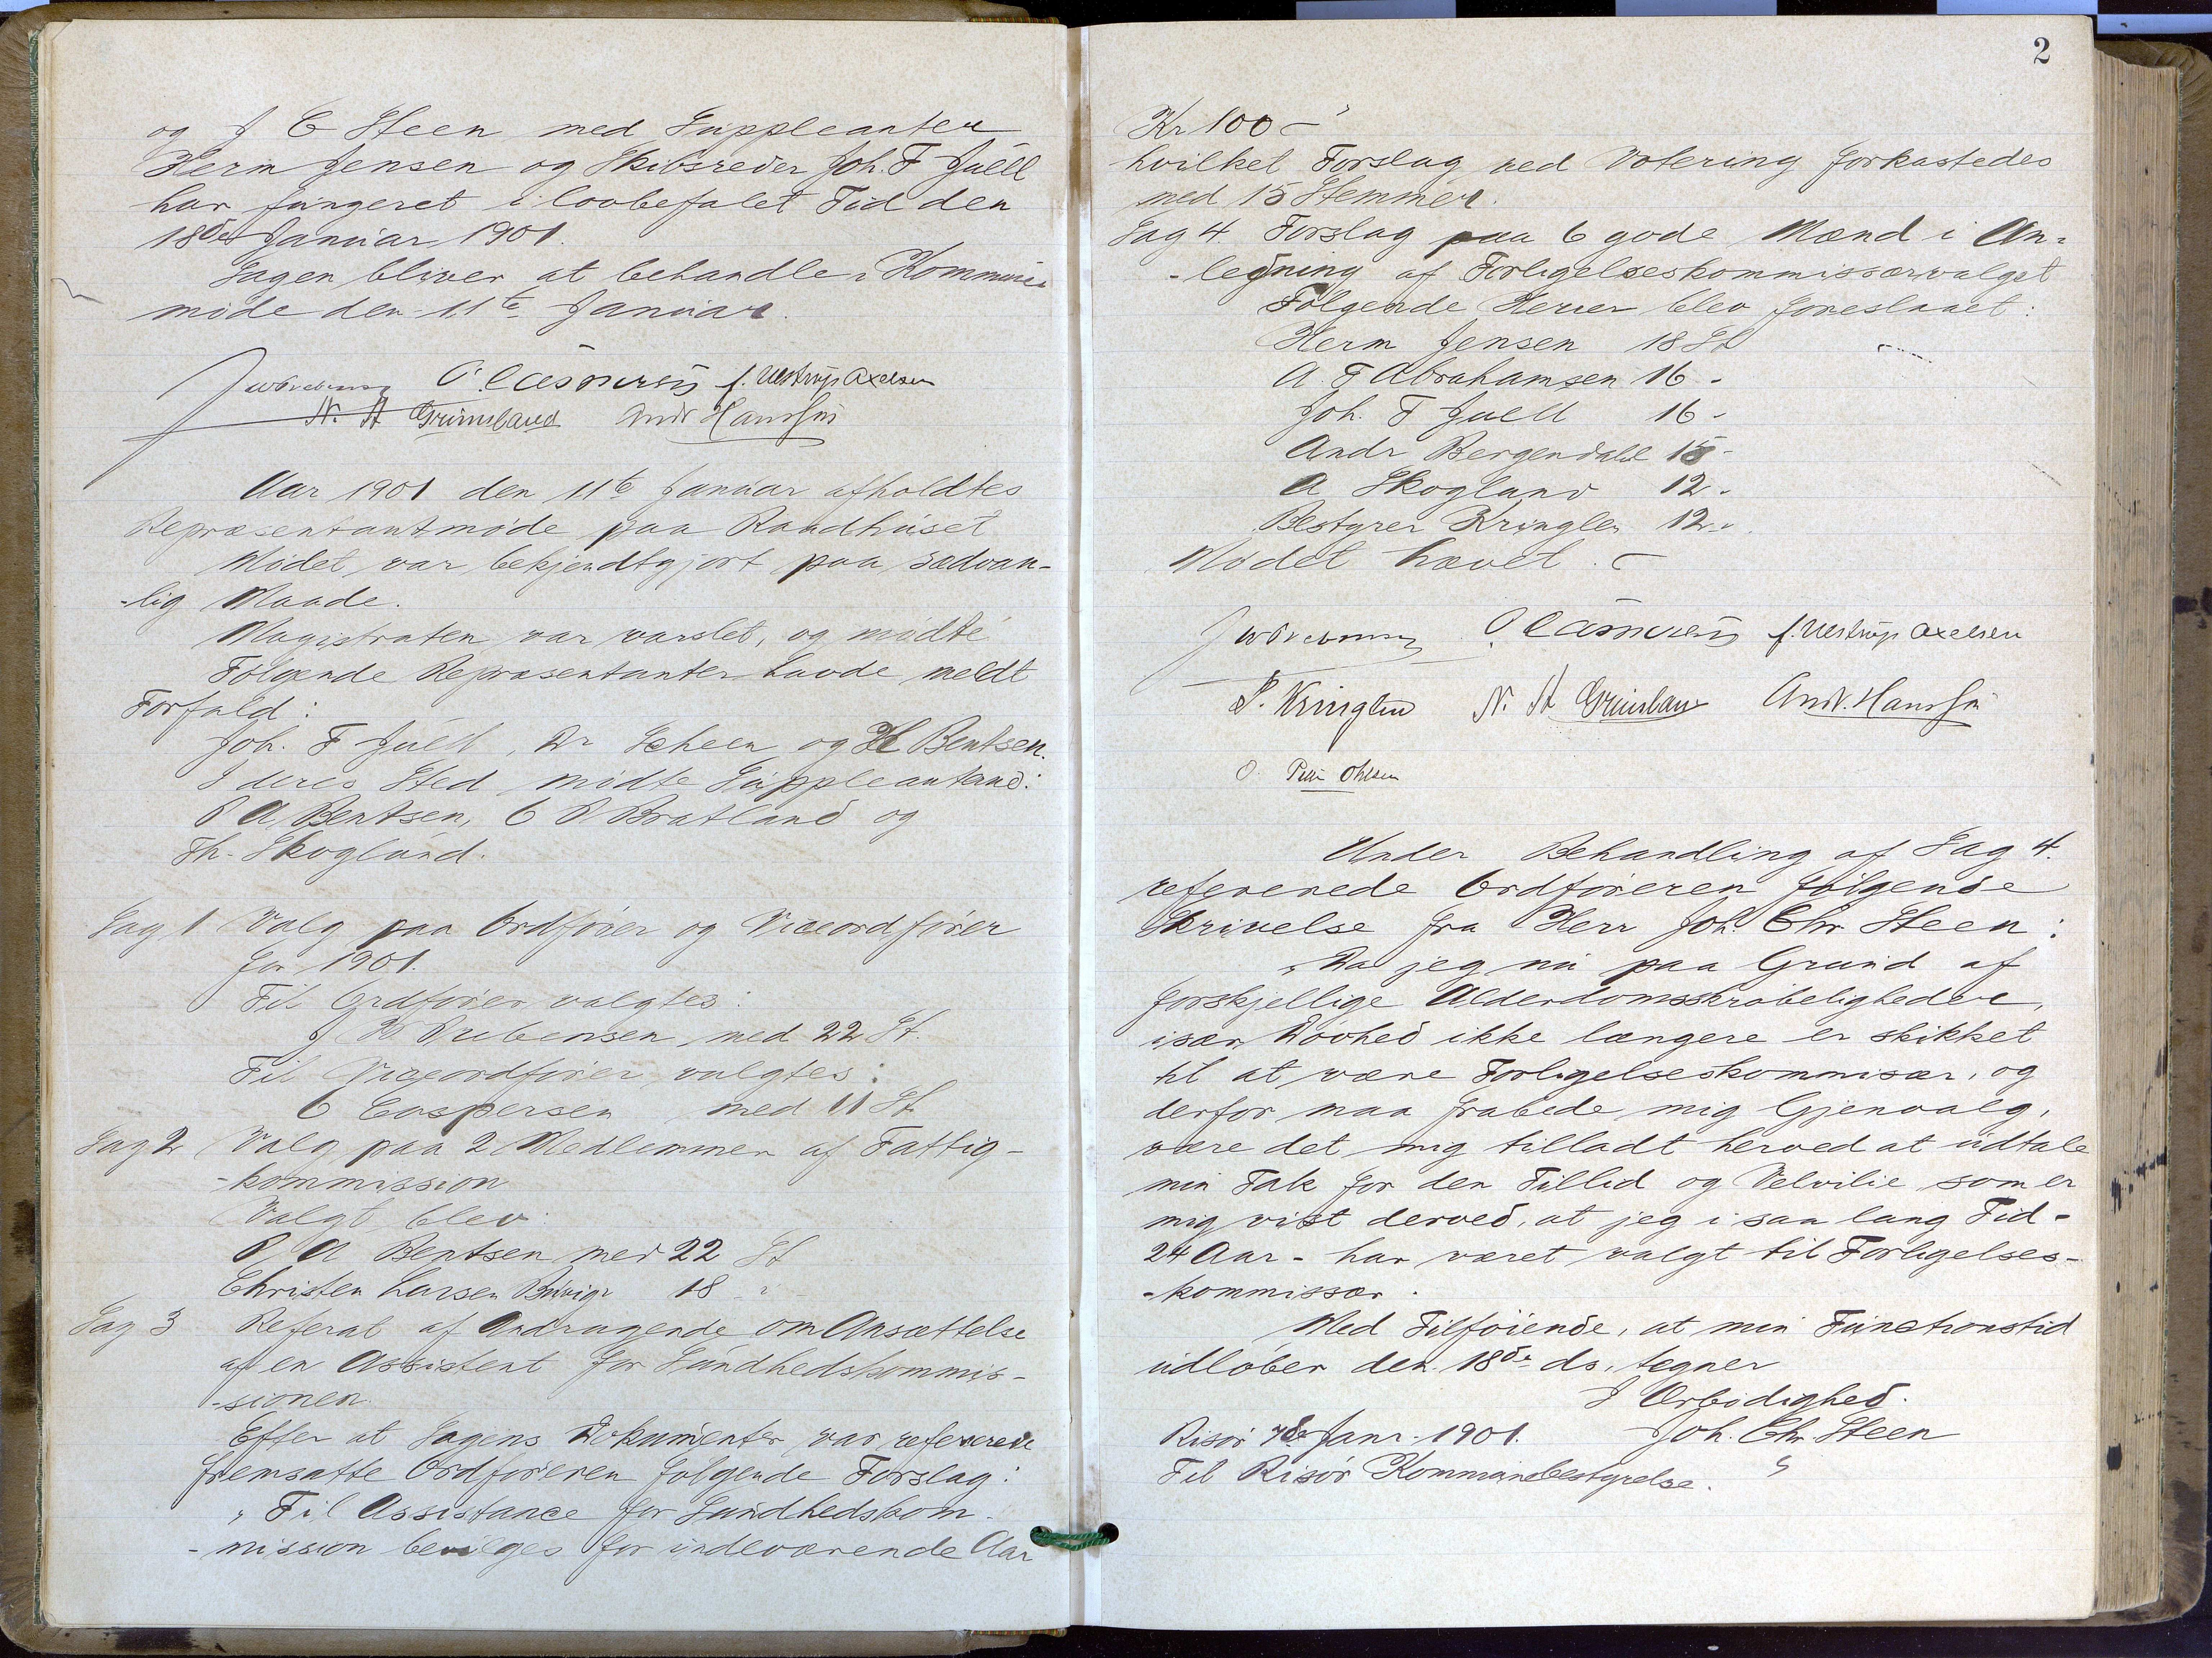 og J C Steen med Suppleanter
Herm Jensen og Skibsreder Joh. F Juell
har fungeret i lovbefalet Tid den
18de Januar 1901.
Sagen bliver at behandle i Kommune
møde den 11te Januar.
O. Caspersen f. Ulstrup Axelsen
N. A Grimsland Andr Hanssen
Aar 1901 den 11te Januar afholdtes
Repræsentantmøde paa Raadhuset
Mødet var bekjendtgjort paa sædvan-
-lig Maade.
Magistraten var varslet, og mødte
Følgende Repræsentanter havde meldt
Forfald:
Joh. F Juell, Dr Scheen og H Bentsen.
I deres Sted mødte Suppleanterne:
P A Bentsen, O P Bratland og
Th. Skogland.
Sag 1 Valg paa Ordfører og Viceordfører
for 1901.
Til Ordfører valgtes:
J W Prebensen med 22 St.
Til Viceordfører valgtes:
O Caspersen med 11 St.
Sag 2 Valg paa 2 Medlemmer af Fattig-
-kommission
Valgt blev:
P A Bentsen med 22 St
Christen Larsen 18 "
Sag 3 Referat af Andragende om Ansættelse
af en Assistent for Sundhedskommis-
-sionen.
Efter at Sagens Dokumenter var refererede
fremsatte Ordføreren følgende Forslag:
"Til Assistance for Sundhedskom-
-mission bevilges for indeværende Aar
2
Kr 100 -"
hvilket Forslag ved Votering forkastedes
med 15 Stemmer.
Sag 4. Forslag paa 6 gode Mænd i An-
-ledning af Forligelseskommissærvalget
Følgende Herrer blev foreslaaet:
Herm Jensen 18 St
A. F Abrahamsen 16 -
Joh. F Juell 16 -
Andr Bergendahl 15 -
A Skogland 12 -
Bestyrer Kringlen 12 -
Mødet hævet. -
O Caspersen f. Ulstrup Axelsen
P. Kringlen N. A Grimsland Andr. Hanssen
O. Ohlsen
Under Behandling af Sag 4.
refererede Ordføreren følgende
Skrivelse fra Herr Joh. Chr. Steen:
"Da jeg nu paa Grund af
forskjellige Alderdomsskrøbeligheder,
især Døvhed ikke længere er skikket
til at være Forligelseskommisær, og
derfor maa frabede mig Gjenvalg,
være det mig tilladt herved at udtale
min Tak for den Tillid og Velvilie som er
mig vist derved, at jeg i saa lang Tid -
24 Aar - har været valgt til Forligelses-
-kommissær.
Med Tilføiende, at min Functionstid
udløber den 18de ds. tegner
I Ærbødighed.
Risør 7de Janr. 1901. Joh. Chr. Steen
Til Risør Kommunebestyrelse. "